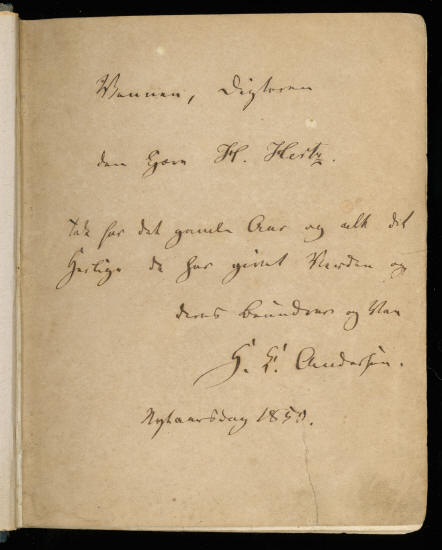 Vennen, Digteren
den Herr H. Hertz.
Tak for det gamle Aar og alt det
Herlige De har givet Verden og
deres beundrer og Ven
H. C. Andersen.
Nytaarsdag 1850.